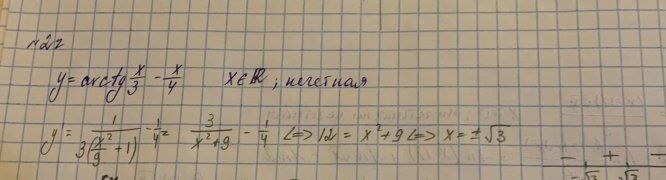 №27
y = arctg x/3 - x/4    x∈R ; нечетная
y' = 1/(3(x²/9 + 1)) - 1/4 = 3/(x²+9) - 1/4 <=> 12 = x²+9 <=> x = ±√3
- + -
-√3 √3